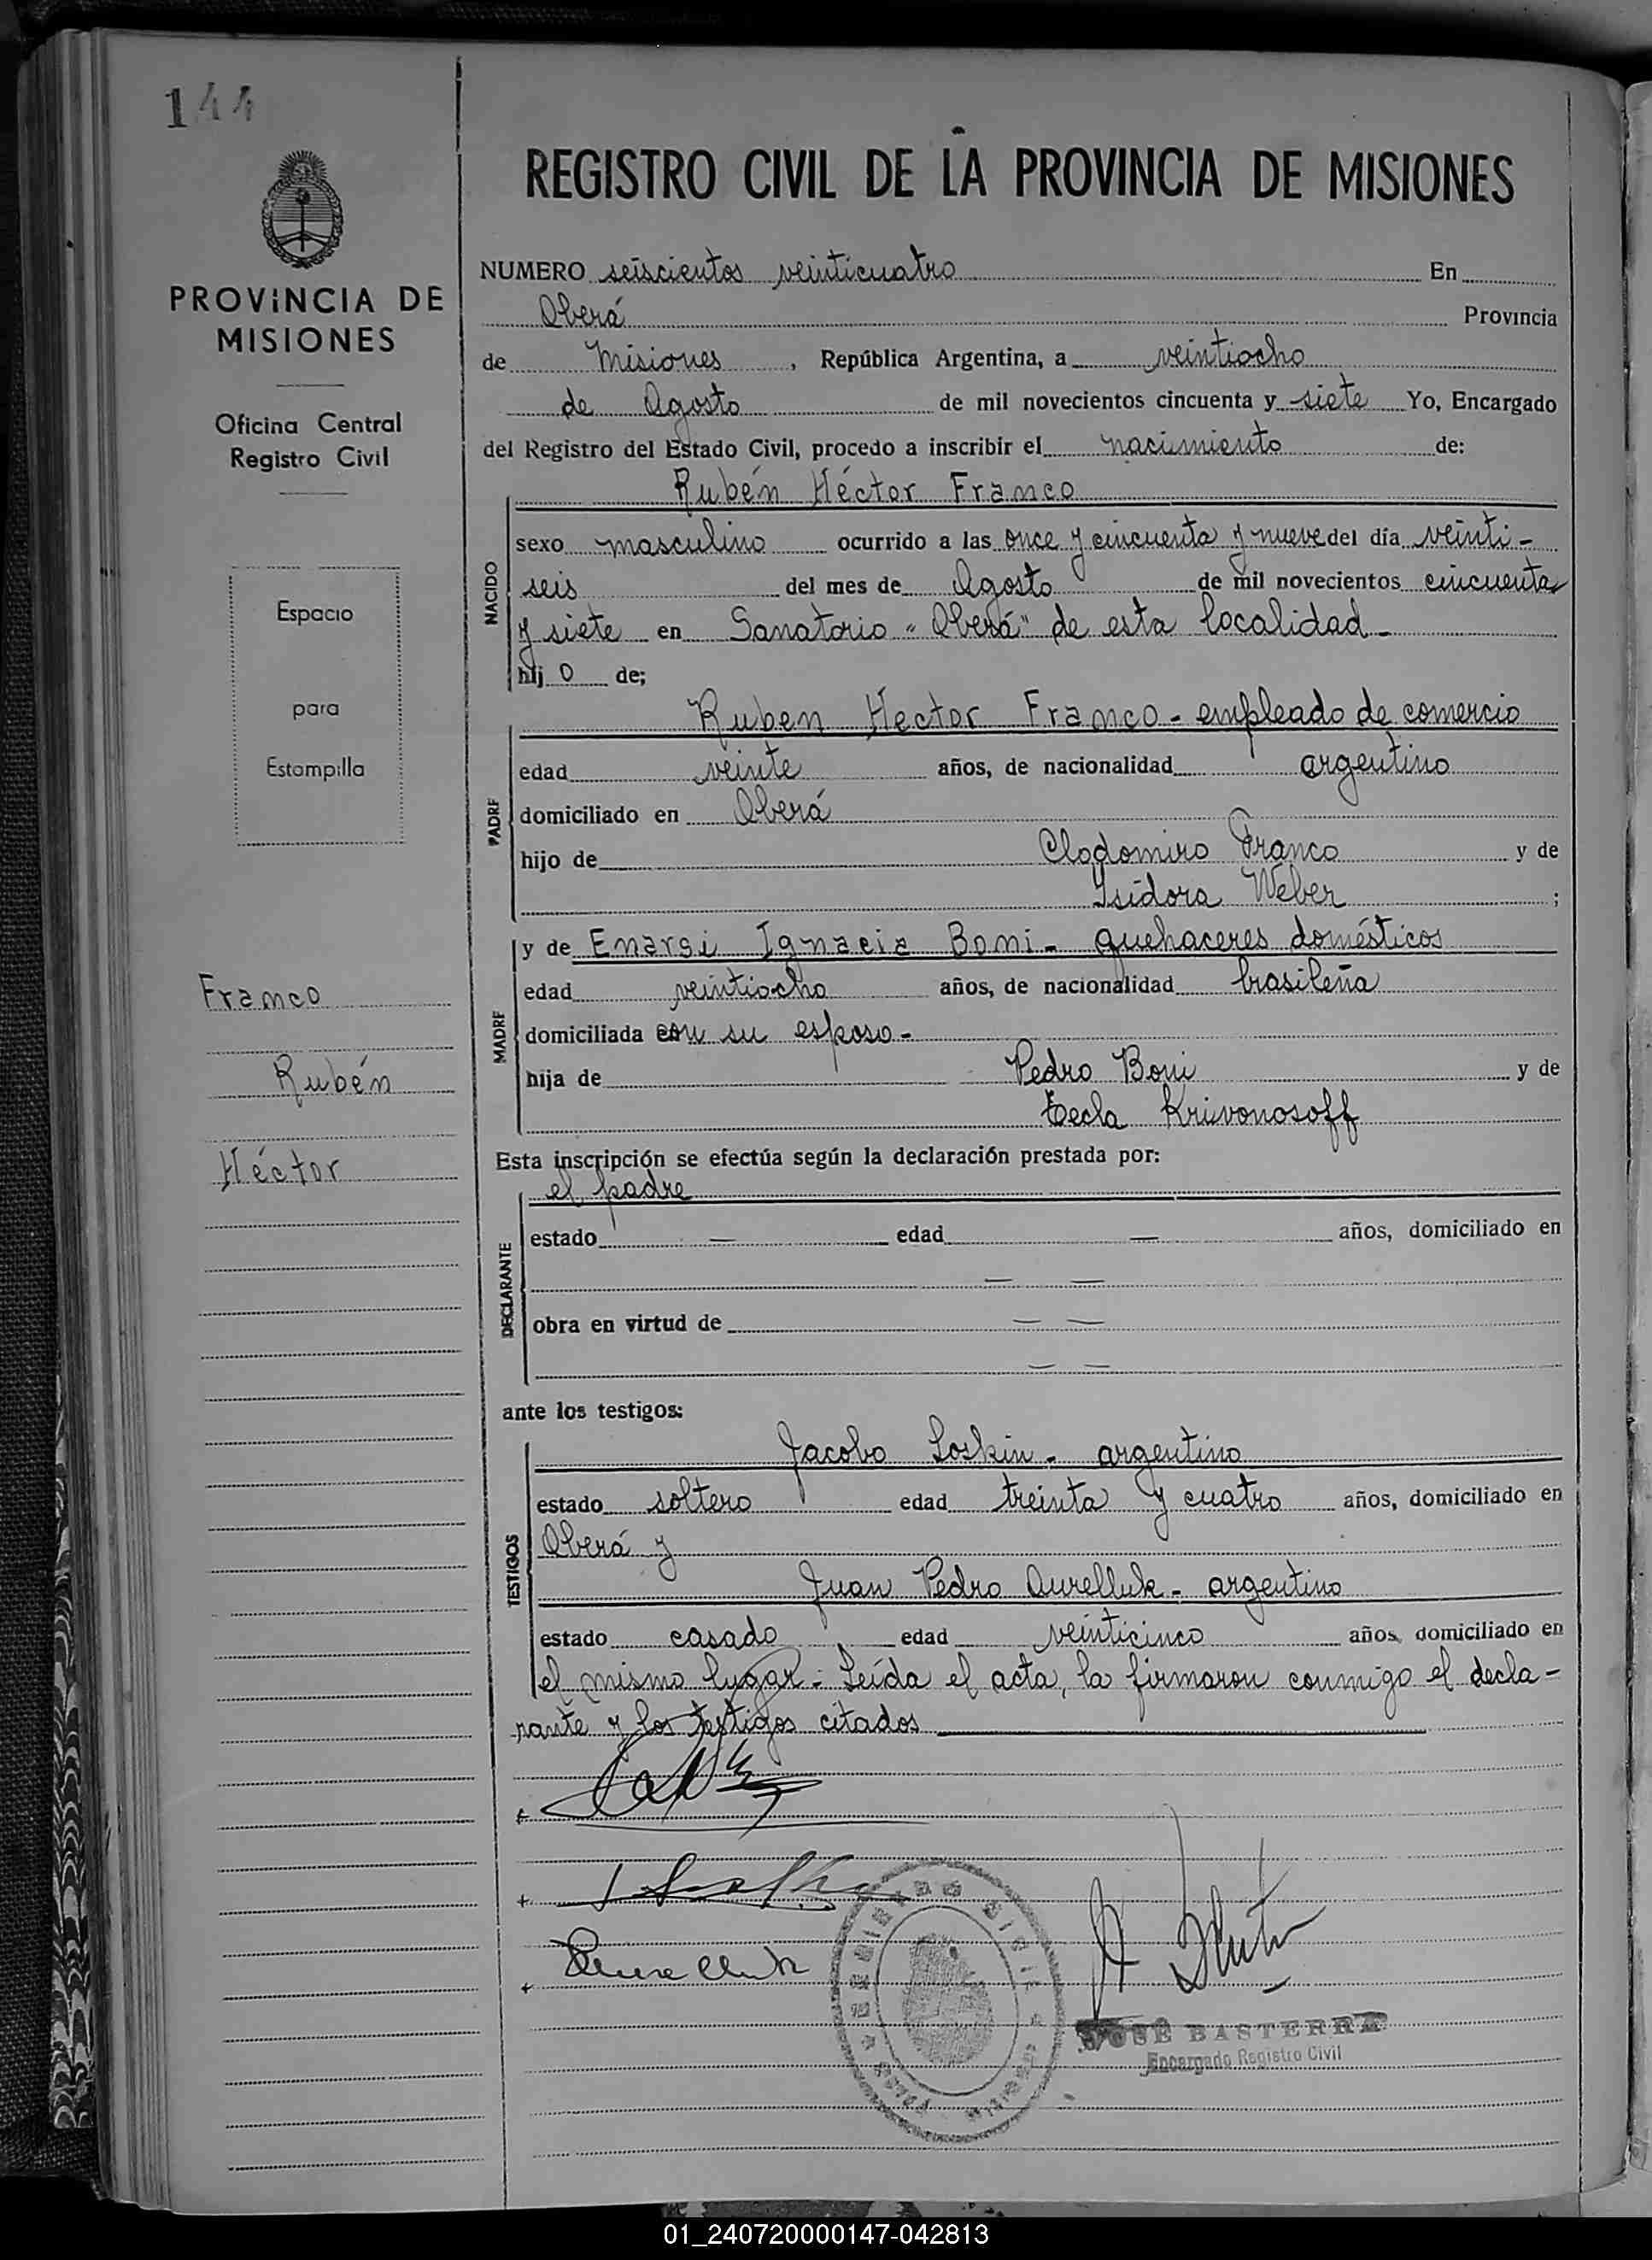 144
PROVINCIA DE
MISIONES
Oficina Central
Registro Civil
Espacio
para
Estampilla
Franco
Rubén
Héctor
REGISTRO CIVIL DE LA PROVINCIA DE MISIONES
NUMERO seiscientos veinticuatro En
Oberá Provincia
de Misiones, República Argentina, a veintiocho
de Agosto de mil novecientos cincuenta y siete Yo, Encargado
del Registro del Estado Civil, procedo a inscribir el nacimiento de:
Rubén Héctor Franco
NACIDO
sexo masculino ocurrido a las once y cincuenta y nueve del día veinti-
seis del mes de Agosto de mil novecientos cincuenta
y siete en Sanatorio "Oberá" de esta localidad-
hij o de;
PADRE
Ruben Hector Franco - empleado de comercio
edad veinte años, de nacionalidad argentino
domiciliado en Oberá
hijo de Clodomiro Franco y de
Isidora Weber ;
MADRE
y de Enarsi Ignacia Boni - quehaceres domésticos
edad veintiocho años, de nacionalidad brasileña
domiciliada con su esposo-
hija de Pedro Boni y de
Tecla Krivonosoff
Esta inscripción se efectúa según la declaración prestada por:
DECLARANTE
el padre
estado — edad — años, domiciliado en
— —
obra en virtud de — —
— —
ante los testigos:
TESTIGOS
Jacobo Loskin - argentino
estado soltero edad treinta y cuatro años, domiciliado en
Oberá y
Juan Pedro Aurelluk - argentino
estado casado edad veinticinco años, domiciliado en
el mismo lugar.- Leída el acta, la firmaron conmigo el decla-
rante y los testigos citados
JOSÉ BASTERRA
Encargado Registro Civil
01_240720000147-042813